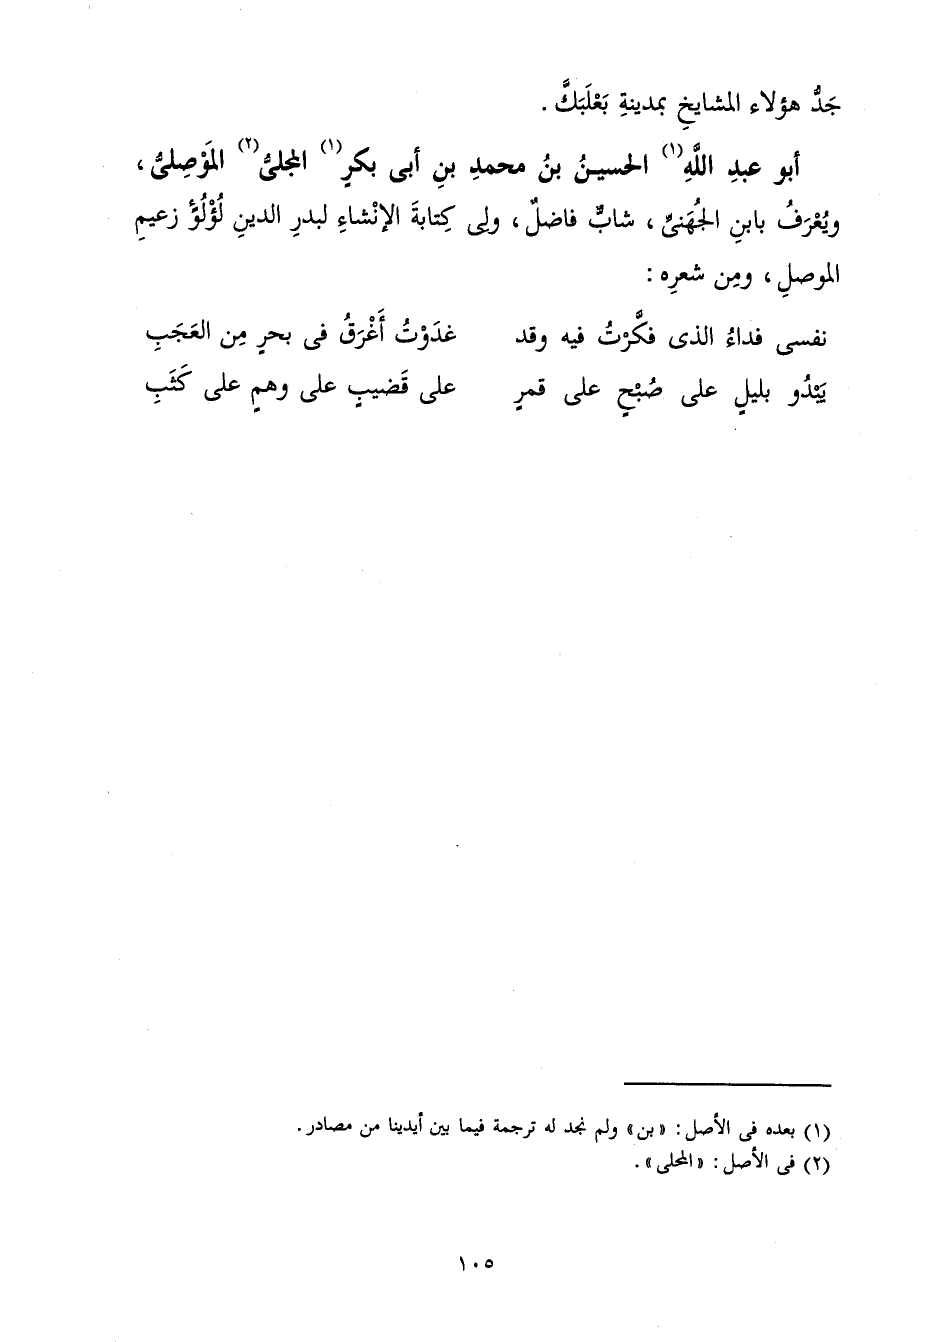 جَدُّ هؤلاء المشايخِ بمدينةِ بَعْلَبَكَّ .
أبو عبدِ اللَّهِ(١) الحسينُ بنُ محمدِ بنِ أبى بكرٍ(١) المجلىُّ(٢) المَوْصِلىُّ ،
ويُعْرَفُ بابنِ الجُهَنىِّ ، شابٌّ فاضلٌ ، ولِى كِتابةَ الإنْشاءِ لبدرِ الدينِ لُؤْلُؤً زعيمِ
الموصلِ ، ومِن شعرِه :
نفسى فداءُ الذى فكَّرْتُ فيه وقد غدَوْتُ أَغْرَقُ فى بحرٍ مِن العَجَبِ
يَبْدُو بليلٍ على صُبْحٍ على قمرٍ على قَضيبٍ على وهمٍ على كَثَبِ
(١) بعده فى الأصل : « بن » ولم نجد له ترجمة فيما بين أيدينا من مصادر .
(٢) فى الأصل : « المحلى » .
١٠٥